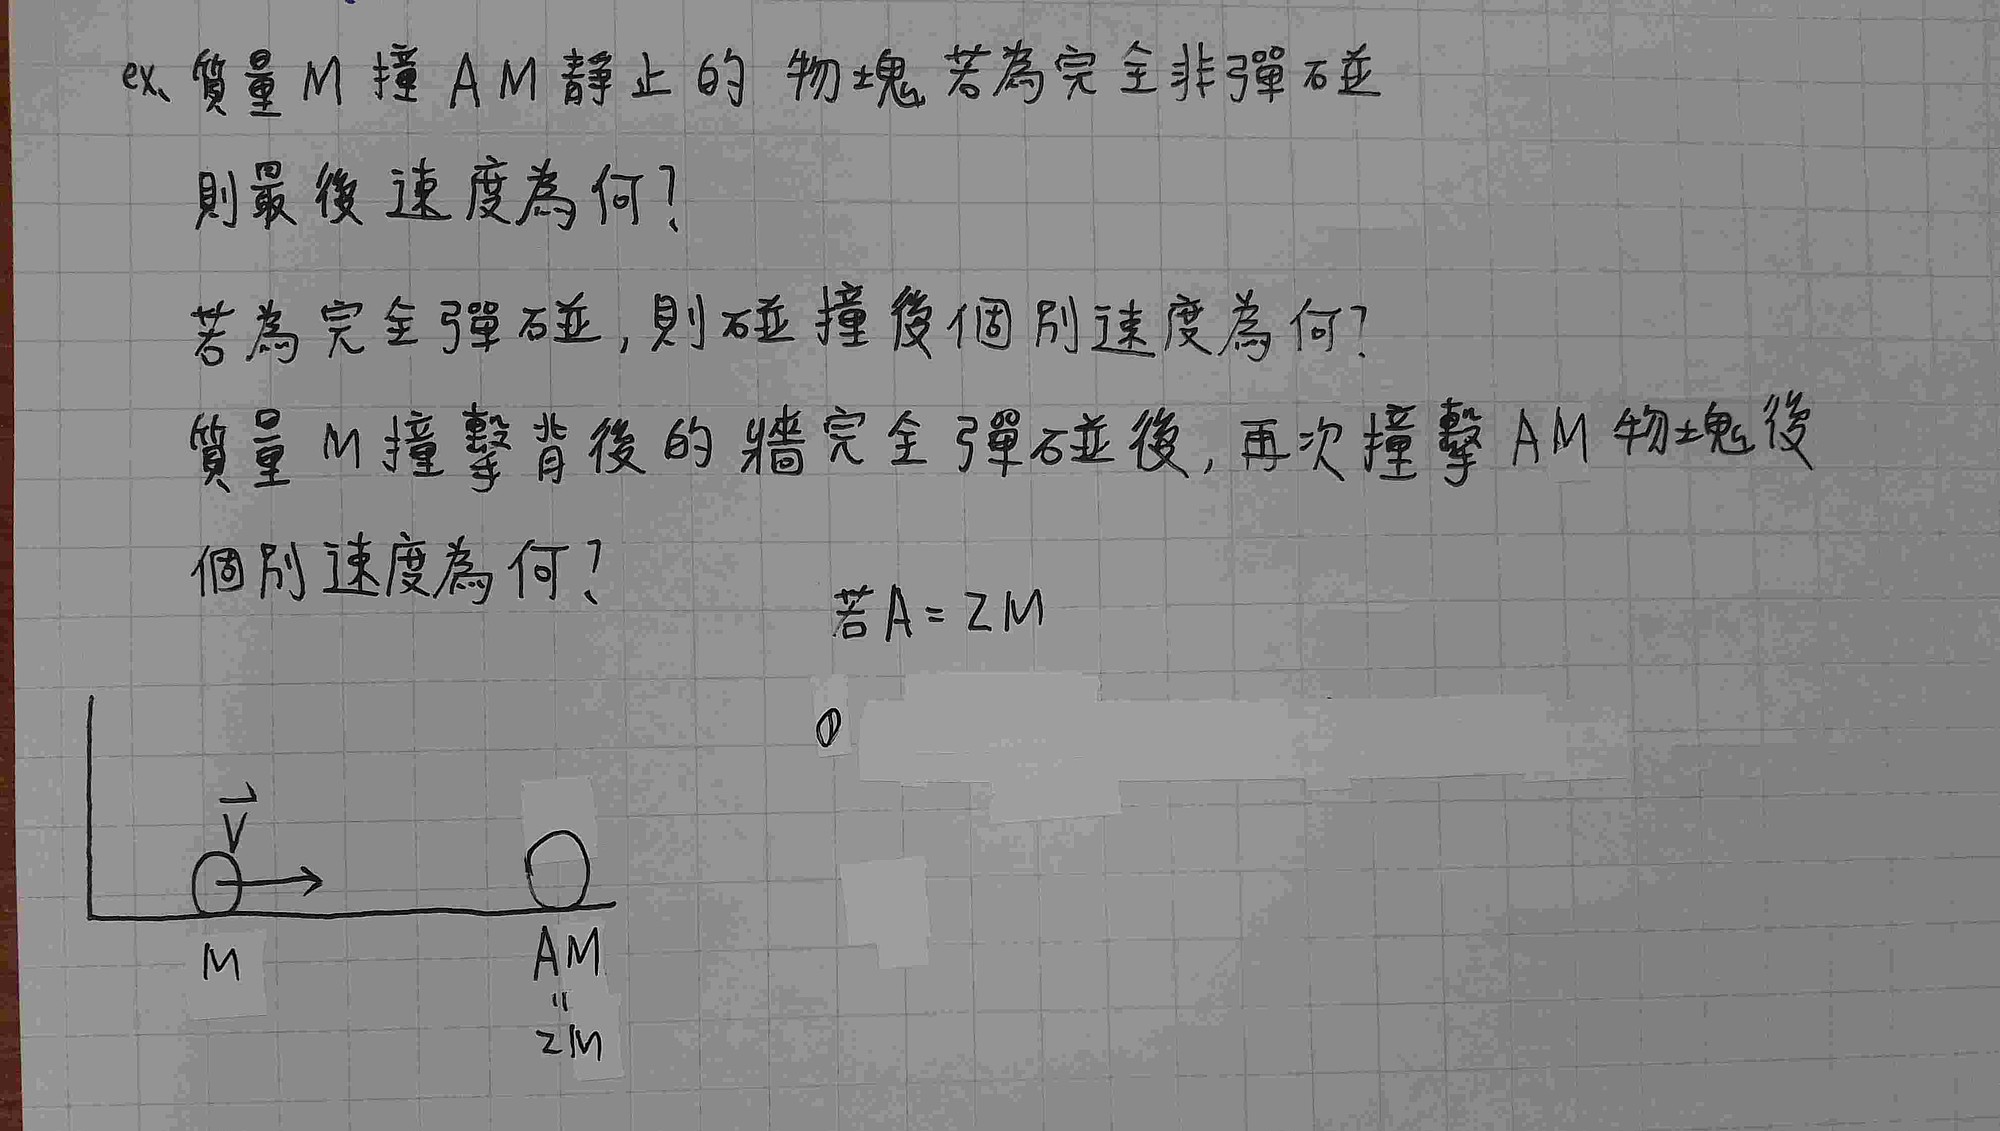 ex、質量M撞AM靜止的物塊若為完全非彈碰
則最後速度為何?
若為完全彈碰,則碰撞後個別速度為何?
質量M撞擊背後的牆完全彈碰後,再次撞擊AM物塊後
個別速度為何?
若A=2M
①
V
M
AM
=
2M